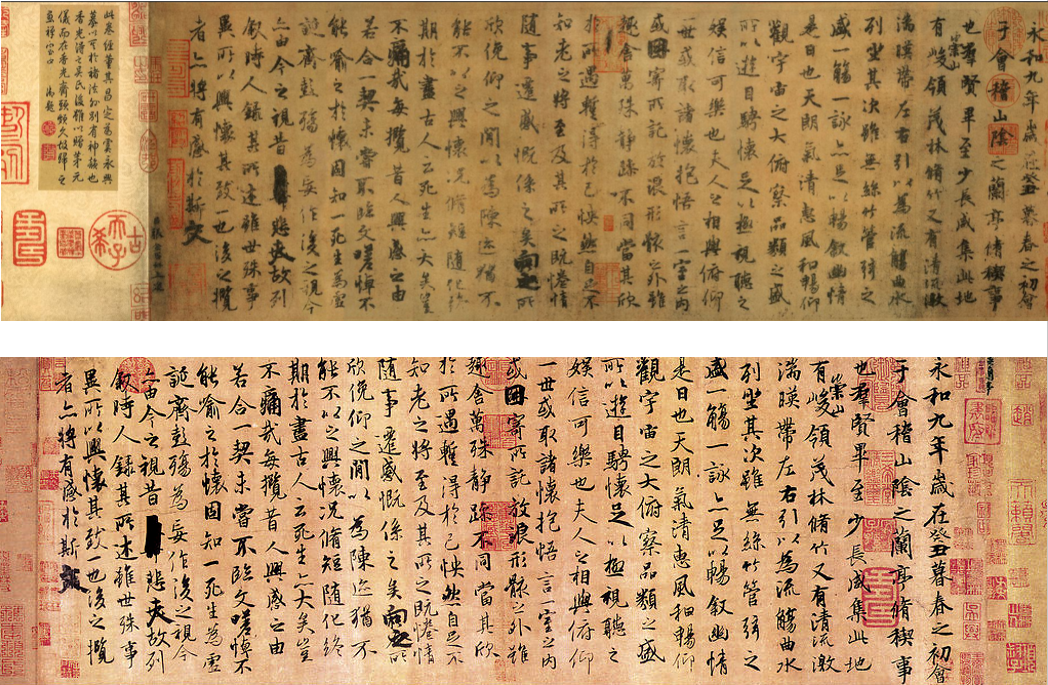 永和九年歲在癸丑暮春之初會
于會稽山陰之蘭亭脩禊事
也羣賢畢至少長咸集此地
有崇山峻領茂林脩竹又有清流激
湍暎帶左右引以為流觴曲水
列坐其次雖無絲竹管弦之
盛一觴一詠亦足以暢敘幽情
是日也天朗氣清惠風和暢仰
觀宇宙之大俯察品類之盛
所以遊目騁懷足以極視聽之
娛信可樂也夫人之相與俯仰
一世或取諸懷抱悟言一室之內
或因寄所託放浪形骸之外雖
趣舍萬殊靜躁不同當其欣
於所遇暫得於己怏然自足不
知老之將至及其所之既惓情
隨事遷感慨係之矣向之所
欣俛仰之閒以為陳迹猶不
能不以之興懷況脩短隨化終
期於盡古人云死生亦大矣豈
不痛哉每攬昔人興感之由
若合一契未嘗不臨文嗟悼不
能喻之於懷固知一死生為虛
誕齊彭殤為妄作後之視今
亦由今之視昔悲夫故列
敘時人錄其所述雖世殊事
異所以興懷其致一也後之攬
者亦將有感於斯文
古希天子
此卷經董其昌定為虞永興
摹以其於褚法外別有神韻也
香光得之吳民後雖以贈茅元
儀而在香光齋頭頗久故歸之
畫禪室中 御題
永和九年歲在癸丑暮春之初會
于會稽山陰之蘭亭脩禊事
也羣賢畢至少長咸集此地
有崇山峻領茂林脩竹又有清流激
湍暎帶左右引以為流觴曲水
列坐其次雖無絲竹管弦之
盛一觴一詠亦足以暢敘幽情
是日也天朗氣清惠風和暢仰
觀宇宙之大俯察品類之盛
所以遊目騁懷足以極視聽之
娛信可樂也夫人之相與俯仰
一世或取諸懷抱悟言一室之內
或因寄所託放浪形骸之外雖
趣舍萬殊靜躁不同當其欣
於所遇暫得於己怏然自足不
知老之將至及其所之既惓情
隨事遷感慨係之矣向之所
欣俛仰之閒以為陳迹猶不
能不以之興懷況脩短隨化終
期於盡古人云死生亦大矣豈
不痛哉每攬昔人興感之由
若合一契未嘗不臨文嗟悼不
能喻之於懷固知一死生為虛
誕齊彭殤為妄作後之視今
亦由今之視昔悲夫故列
敘時人錄其所述雖世殊事
異所以興懷其致一也後之攬
者亦將有感於斯文